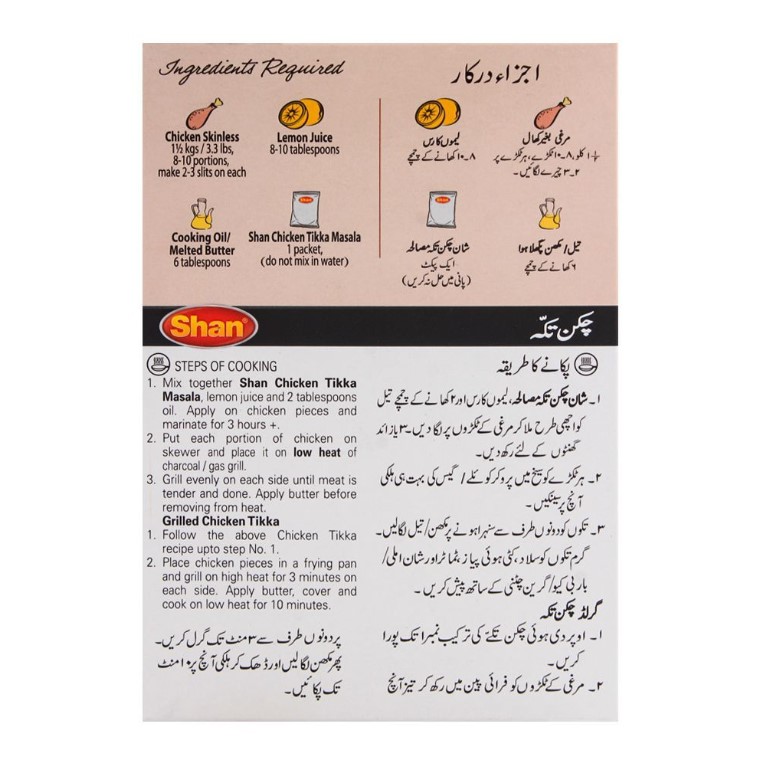 Ingredients Required
Chicken Skinless
1½ kgs / 3.3 lbs,
8-10 portions,
make 2-3 slits on each
Lemon Juice
8-10 tablespoons
Cooking Oil/
Melted Butter
6 tablespoons
Shan Chicken Tikka Masala
1 packet,
(do not mix in water)
اجزاء درکار
مرغی بغیر کھال
۱½ کلو، ۸-۱۰ ٹکڑے، ہر ٹکڑے پر
۲-۳ چیرے لگائیں۔
لیموں کا رس
۸-۱۰ کھانے کے چمچے
تیل/مکھن پگھلا ہوا
۶ کھانے کے چمچے
شان چکن تکہ مصالحہ
ایک پیکٹ
(پانی میں حل نہ کریں)
Shan
چکن تکّہ
STEPS OF COOKING
1. Mix together Shan Chicken Tikka
Masala, lemon juice and 2 tablespoons
oil. Apply on chicken pieces and
marinate for 3 hours +.
2. Put each portion of chicken on
skewer and place it on low heat of
charcoal / gas grill.
3. Grill evenly on each side until meat is
tender and done. Apply butter before
removing from heat.
Grilled Chicken Tikka
1. Follow the above Chicken Tikka
recipe upto step No. 1.
2. Place chicken pieces in a frying pan
and grill on high heat for 3 minutes on
each side. Apply butter, cover and
cook on low heat for 10 minutes.
پکانے کا طریقہ
۱۔ شان چکن تکہ مصالحہ، لیموں کا رس اور ۲ کھانے کے چمچے تیل
کو اچھی طرح ملا کر مرغی کے ٹکڑوں پر لگا دیں۔ ۳ یا زائد
گھنٹوں کے لئے رکھ دیں۔
۲۔ ہر ٹکڑے کو سیخ میں پرو کر کوئلے / گیس کی بہت ہی ہلکی
آنچ پر سینکیں۔
۳۔ تکوں کو دونوں طرف سے سنہرا ہونے پر مکھن/تیل لگالیں۔
گرم تکوں کو سلاد، کٹی ہوئی پیاز، ٹماٹر اور شان املی/
بار بی کیو/گرین چٹنی کے ساتھ پیش کریں۔
گرلڈ چکن تکہ
۱۔ اوپر دی ہوئی چکن تکّے کی ترکیب نمبر ۱ تک پورا
کریں۔
۲۔ مرغی کے ٹکڑوں کو فرائی پین میں رکھ کر تیز آنچ
پر دونوں طرف سے ۳ منٹ تک گرل کریں۔
پھر مکھن لگالیں اور ڈھک کر ہلکی آنچ پر ۱۰ منٹ
تک پکائیں۔